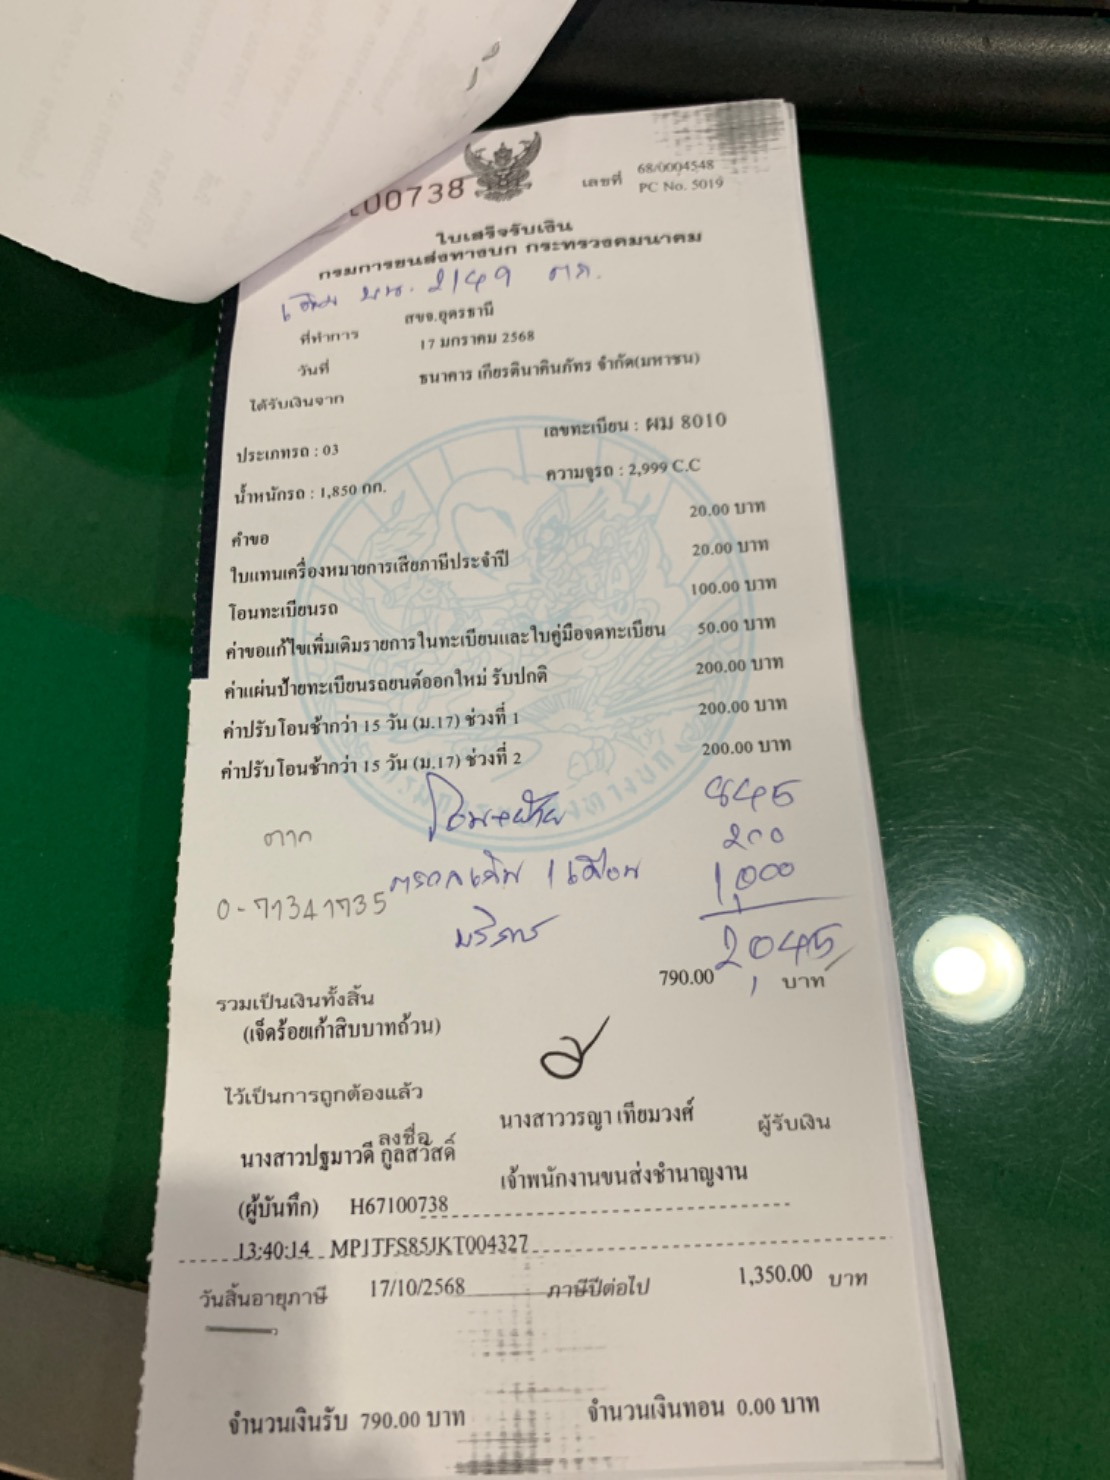 เลขที่ 68/0004548
PC No. 5019
00738
ใบเสร็จรับเงิน
กรมการขนส่งทางบก กระทรวงคมนาคม
เดิม 2149 ตก.
ที่ทำการ สขจ.อุดรธานี
วันที่ 17 มกราคม 2568
ได้รับเงินจาก ธนาคาร เกียรตินาคินภัทร จำกัด(มหาชน)
ประเภทรถ : 03 เลขทะเบียน : ผม 8010
น้ำหนักรถ : 1,850 กก. ความจุรถ : 2,999 C.C
คำขอ 20.00 บาท
ใบแทนเครื่องหมายการเสียภาษีประจำปี 20.00 บาท
โอนทะเบียนรถ 100.00 บาท
ค่าขอแก้ไขเพิ่มเติมรายการในทะเบียนและใบคู่มือจดทะเบียน 50.00 บาท
ค่าแผ่นป้ายทะเบียนรถยนต์ออกใหม่ รับปกติ 200.00 บาท
ค่าปรับโอนช้ากว่า 15 วัน (ม.17) ช่วงที่ 1 200.00 บาท
ค่าปรับโอนช้ากว่า 15 วัน (ม.17) ช่วงที่ 2 200.00 บาท
โอน+ย้าย 845
ตาก 200
0-71341735 1 เดือน 1,000
บริการ 2,045
รวมเป็นเงินทั้งสิ้น 790.00 บาท
(เจ็ดร้อยเก้าสิบบาทถ้วน)
ไว้เป็นการถูกต้องแล้ว
ลงชื่อ นางสาววรญา เทียมวงศ์ ผู้รับเงิน
นางสาวปฐมาวดี กูลสวัสดิ์ เจ้าพนักงานขนส่งชำนาญงาน
(ผู้บันทึก) H67100738
13:40:14 MP1TFS85JKT004327
วันสิ้นอายุภาษี 17/10/2568 ภาษีปีต่อไป 1,350.00 บาท
จำนวนเงินรับ 790.00 บาท จำนวนเงินทอน 0.00 บาท